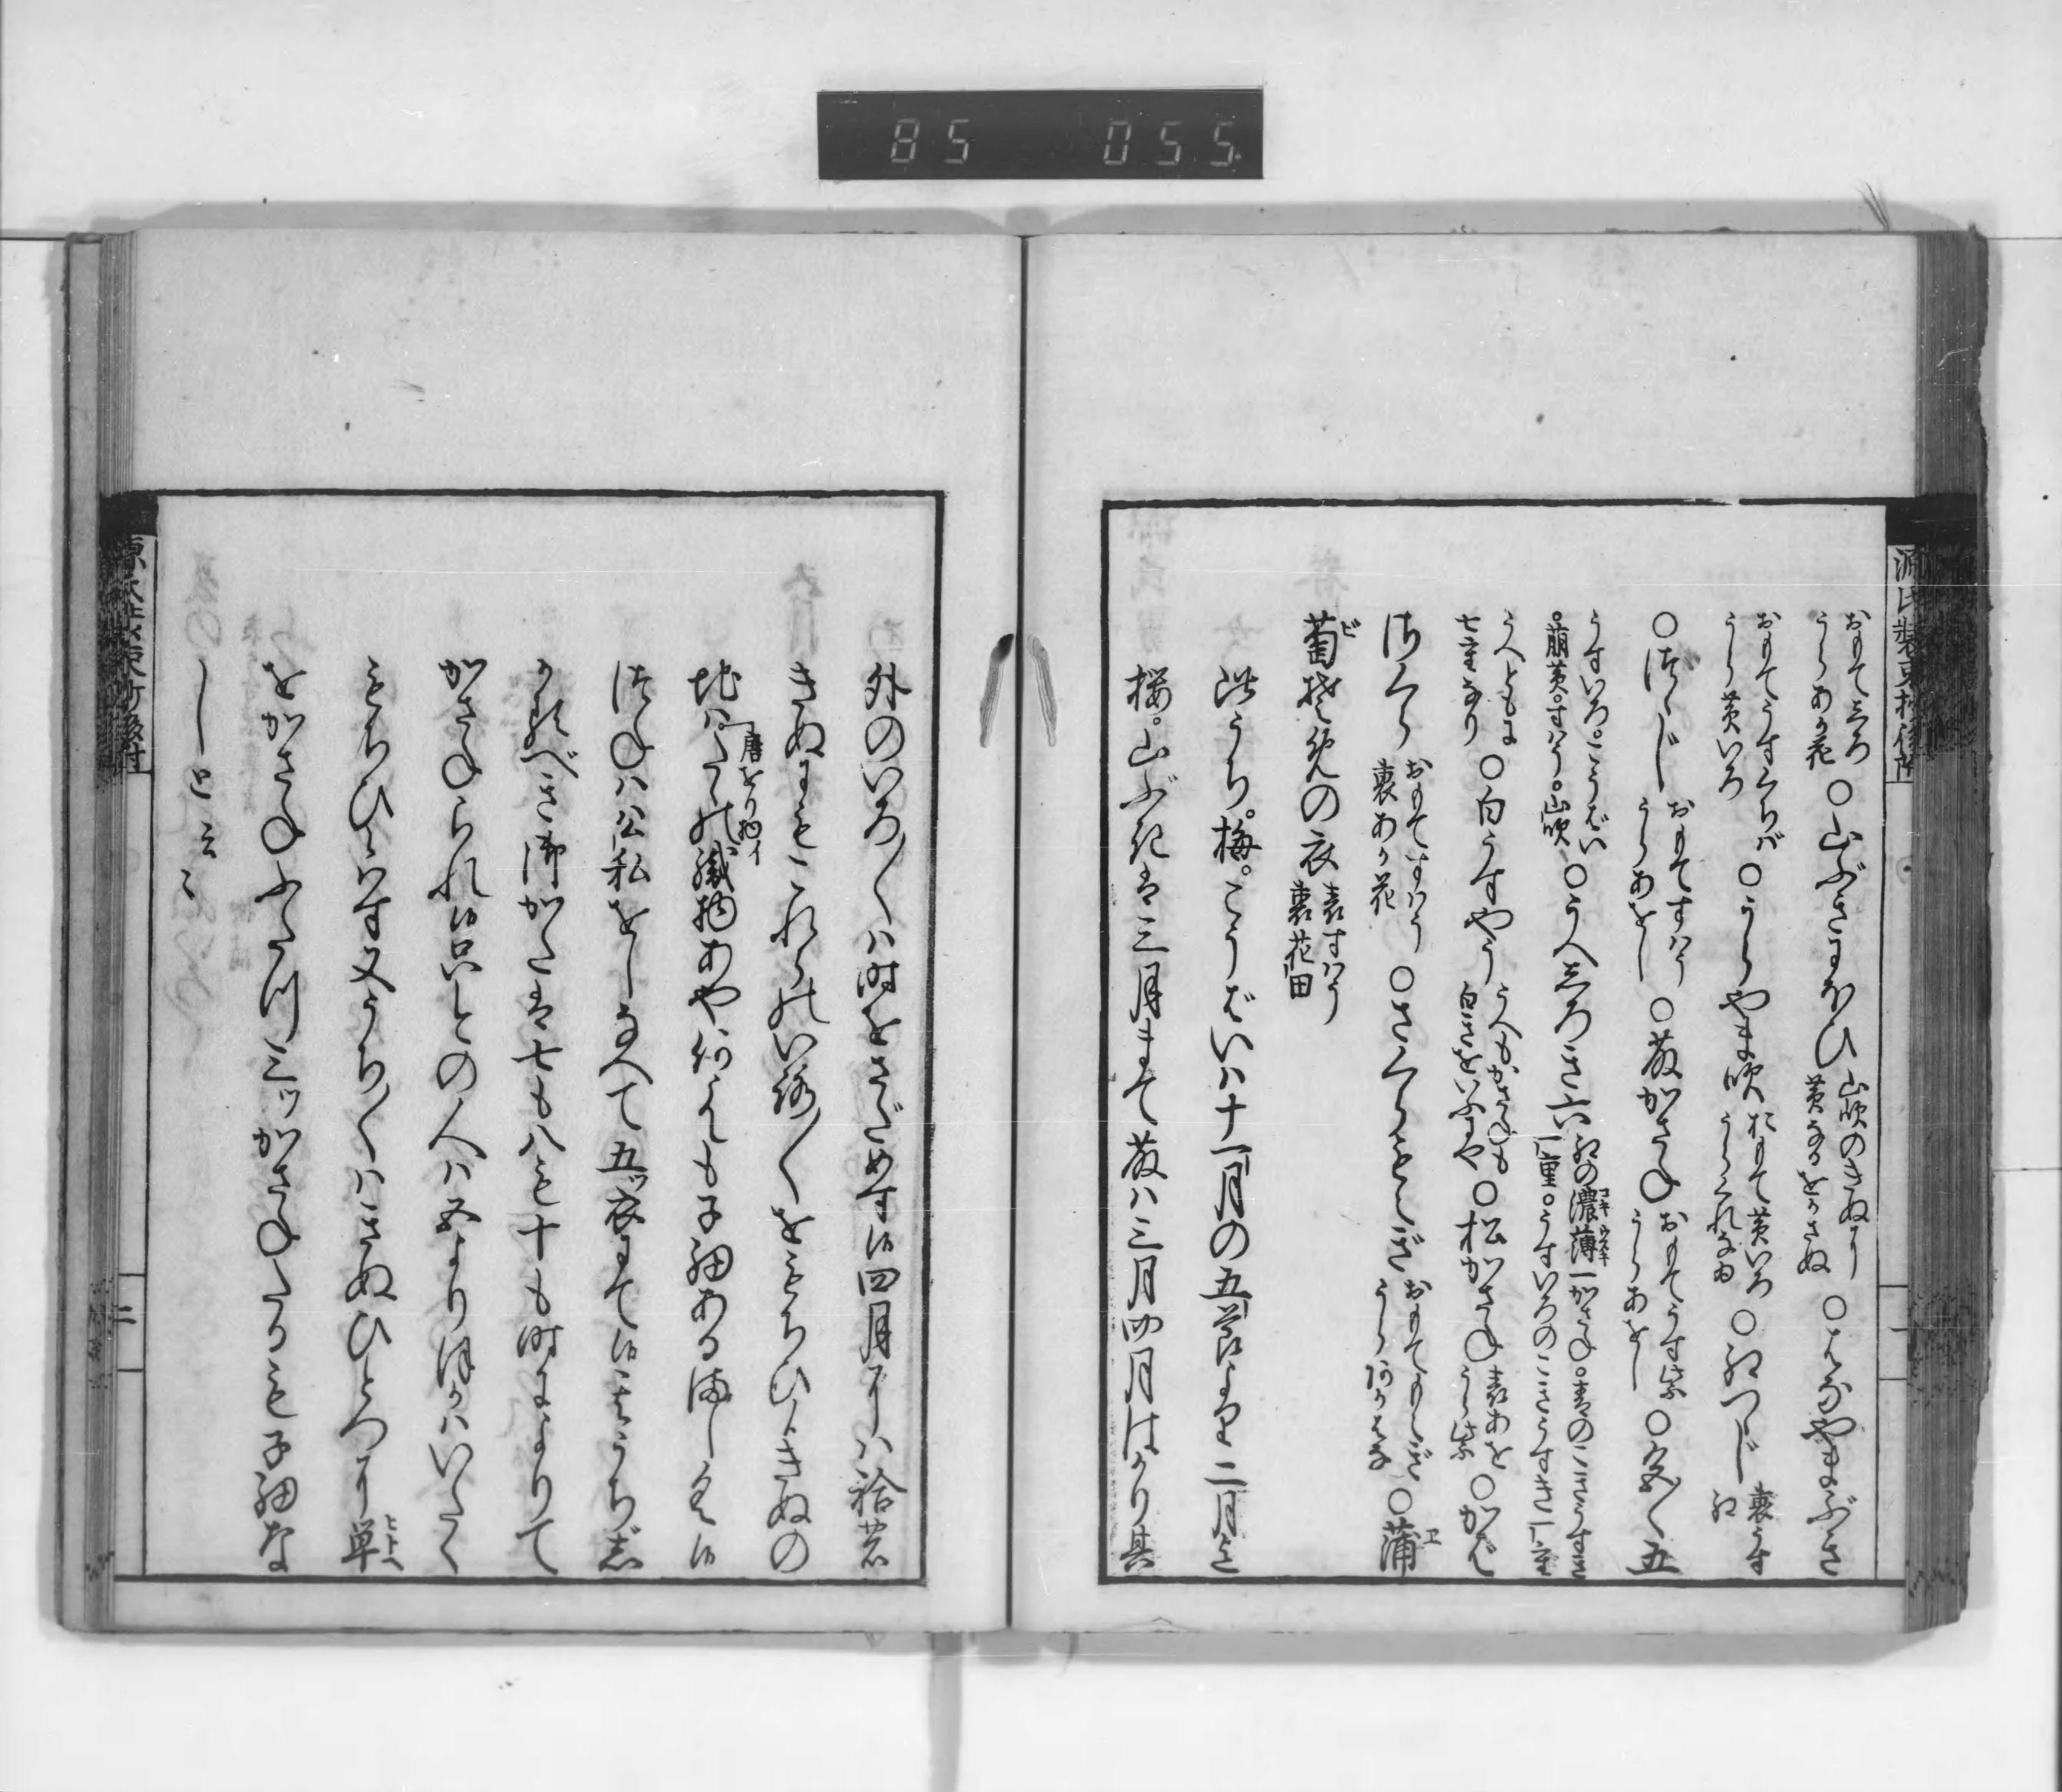 85 055
源氏装束抄後附
おもてしろ
うらあか花
○山ぶきにほひ
山吹のきぬに
黄なるをかさぬ
○はなやまぶき
おもてうすくちバ
うら黄いろ
○うらやま吹
おもて黄いろ
うらくれなゐ
○紅つゝじ
裏うす
紅
○つゝじ
おもてすはう
うらあをし
○藤がさね
おもてうす紫
うらあをし
○色々五
うすいろ。こうばい
。萠黄。すはう。山吹
○うへしろき六
紅の濃薄一かさね。青のこきうすき
一重。うすいろのこきうすき一重
うへともに
七重なり
○白うすやう
うへもかさねも
白きをいふにや
○松がさね
表あを
うら紫
○かば
さくら
おもてすはう
裏あか花
○さくらもえぎ
おもてもえぎ
うらあかはな
○蒲
萄染の衣
表すはう
裏花田
此うち。梅。こうばいハ十一月の五節より二月まて
桜。山ぶきは三月まて藤ハ三月四月はかり其
外のいろ〳〵ハ時をさだめす候四月にハ袷若
きぬにもこれらのいろ〳〵をもちひらきぬの
地ハたゝの織物あや何にても子細ある満しく候
唐をり物イ
つねハ公私をしなへて五ッ衣にて候もうち志
かるべき御かたは七も八も十も時によりて
かさねられ候只いとの人ハ五よりほかハいたく
もちひられす又うち〳〵ハきぬひとつに単
をかさねふたつ三ッかさねたるも子細な
しと云々
源氏装束抄後付
二